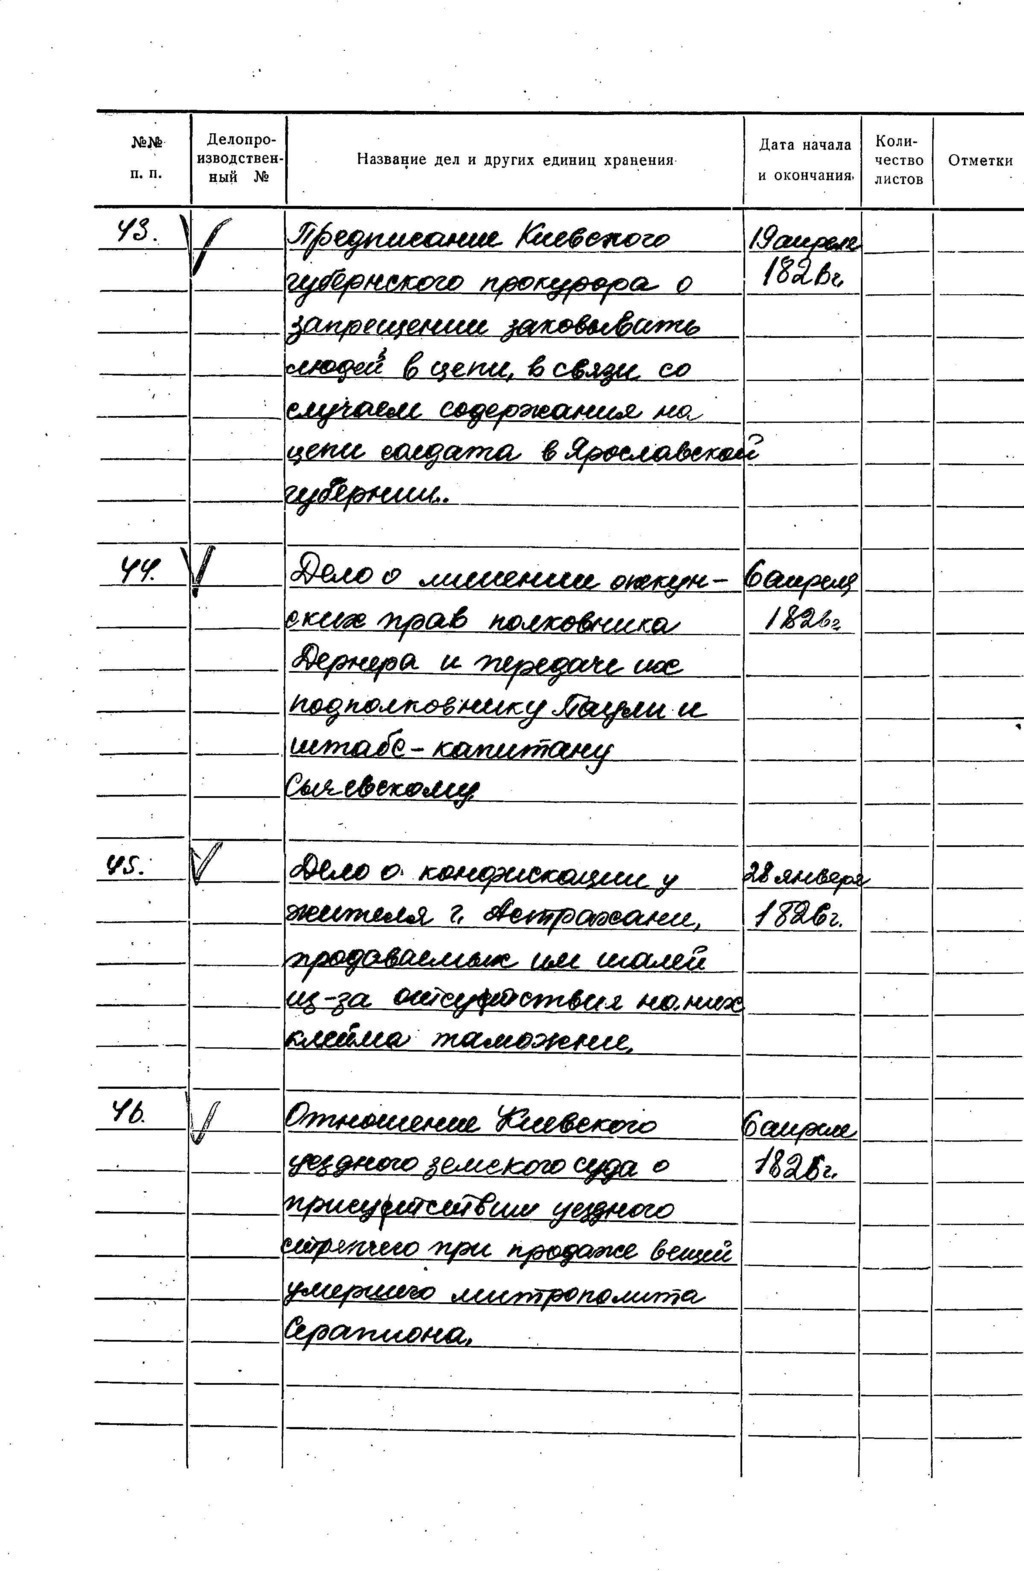 №№ п. п. Делопроизводственный № Название дел и других единиц хранения Дата начала и окончания Количество листов Отметки
43. Предписание Киевского 19 апреля
губернского прокурора о 1826г.
запрещении заковывать
людей в цепи, в связи со
случаем содержания на
цепи солдата в Ярославской
губернии.
44. Дело о лишении опекун- 6 апреля
ских прав полковника 1826г.
Дернера и передаче их
подполковнику Паули и
штабс-капитану
Сычевскому
45. Дело о конфискации у 28 января
жителя г. Астрахани, 1826г.
продаваемых им шалей
из-за отсутствия на них
клейма таможни.
46. Отношение Киевского 6 апреля
уездного земского суда о 1826г.
присутствии уездного
стряпчего при продаже вещей
умершего митрополита
Серапиона.